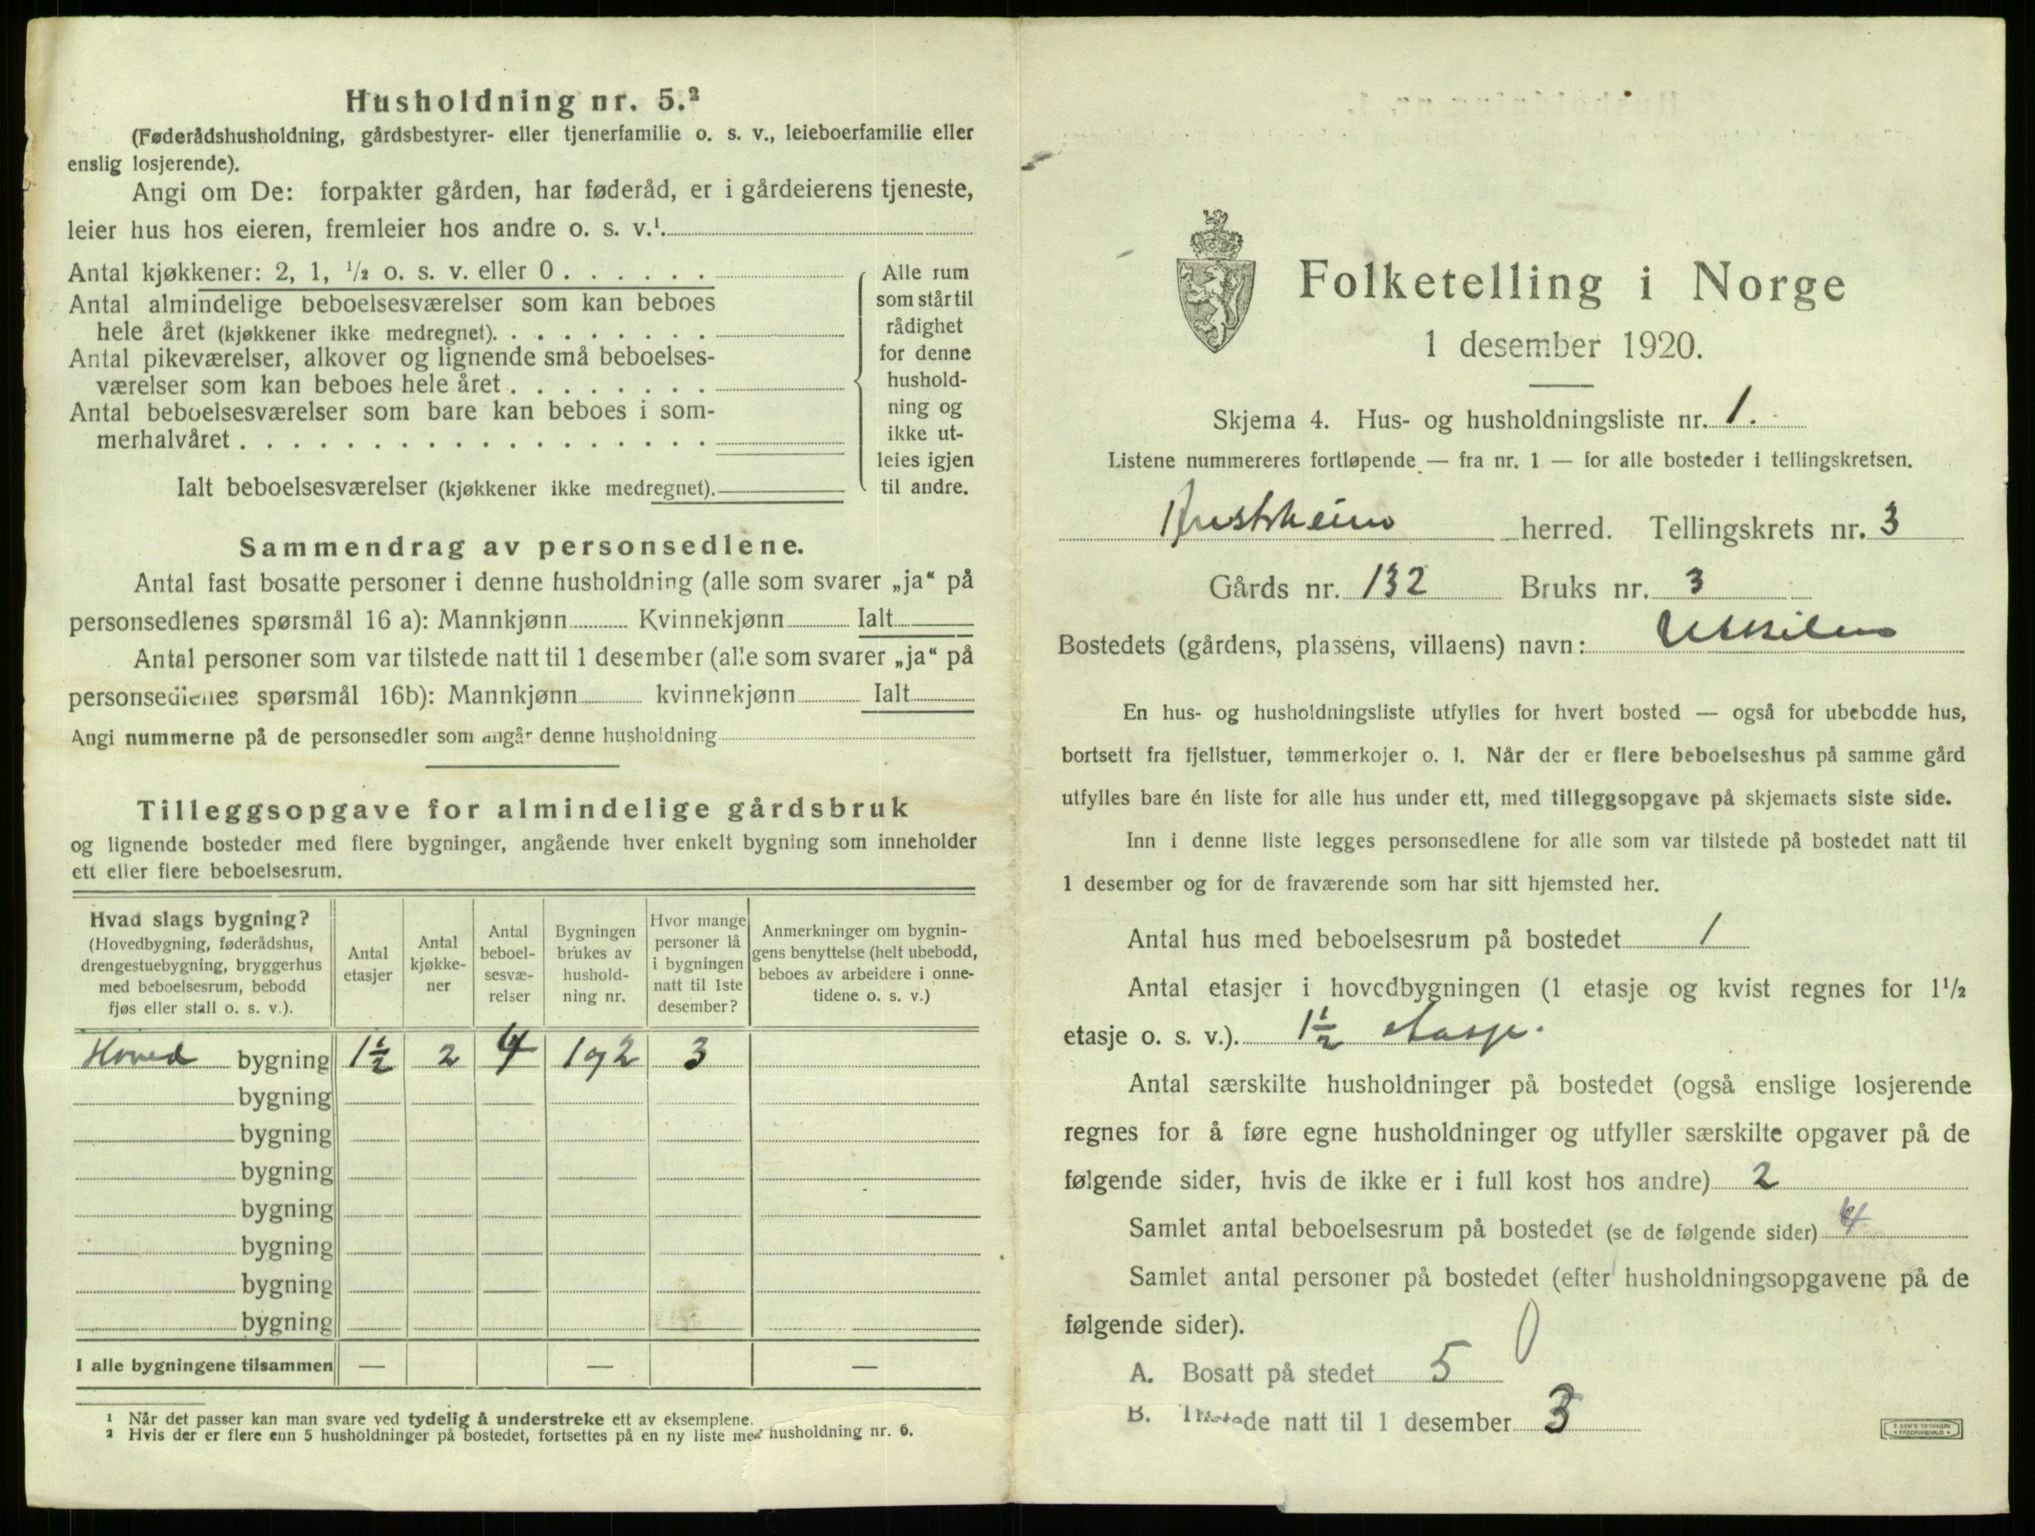 Husholdning nr. 5.²
(Føderådshusholdning, gårdsbestyrer- eller tjenerfamilie o. s. v., leieboerfamilie eller
enslig losjerende).
Angi om De: forpakter gården, har føderåd, er i gårdeierens tjeneste,
leier hus hos eieren, fremleier hos andre o. s. v.¹
Antal kjøkkener: 2, 1, ½ o. s. v. eller 0 . . . . . .
Antal almindelige beboelsesværelser som kan beboes
hele året (kjøkkener ikke medregnet). . . . . . . . .
Antal pikeværelser, alkover og lignende små beboelses-
værelser som kan beboes hele året . . . . . . . .
Antal beboelsesværelser som bare kan beboes i som-
merhalvåret . . . . . . . . . . . . . . . . . .
Ialt beboelsesværelser (kjøkkener ikke medregnet).
Alle rum
som står til
rådighet
for denne
hushold-
ning og
ikke ut-
leies igjen
til andre.
Sammendrag av personsedlene.
Antal fast bosatte personer i denne husholdning (alle som svarer „ja“ på
personsedlenes spørsmål 16 a): Mannkjønn Kvinnekjønn Ialt
Antal personer som var tilstede natt til 1 desember (alle som svarer „ja“ på
personsedlenes spørsmål 16b): Mannkjønn kvinnekjønn Ialt
Angi nummerne på de personsedler som angår denne husholdning
Tilleggsopgave for almindelige gårdsbruk
og lignende bosteder med flere bygninger, angående hver enkelt bygning som inneholder
ett eller flere beboelsesrum.
Hvad slags bygning?
(Hovedbygning, føderådshus,
drengestuebygning, bryggerhus
med beboelsesrum, bebodd
fjøs eller stall o. s. v.).
Antal
etasjer
Antal
kjøkke-
ner
Antal
beboel-
sesvæ-
relser
Bygningen
brukes av
hushold-
ning nr.
Hvor mange
personer lå
i bygningen
natt til 1ste
desember?
Anmerkninger om bygnin-
gens benyttelse (helt ubebodd,
beboes av arbeidere i onne-
tidene o. s. v.)
Hoved bygning 1½ 2 4 1 og 2 3
bygning
bygning
bygning
bygning
bygning
bygning
bygning
I alle bygningene tilsammen — — —
¹ Når det passer kan man svare ved tydelig å understreke ett av eksemplene.
² Hvis der er flere enn 5 husholdninger på bostedet, fortsettes på en ny liste med husholdning nr. 6.
Folketelling i Norge
1 desember 1920.
Skjema 4. Hus- og husholdningsliste nr. 1.
Listene nummereres fortløpende — fra nr. 1 — for alle bosteder i tellingskretsen.
Austrheim herred. Tellingskrets nr. 3
Gårds nr. 132 Bruks nr. 3
Bostedets (gårdens, plassens, villaens) navn: Utkilen
En hus- og husholdningsliste utfylles for hvert bosted — også for ubebodde hus,
bortsett fra fjellstuer, tømmerkojer o. l. Når der er flere beboelseshus på samme gård
utfylles bare én liste for alle hus under ett, med tilleggsopgave på skjemaets siste side.
Inn i denne liste legges personsedlene for alle som var tilstede på bostedet natt til
1 desember og for de fraværende som har sitt hjemsted her.
Antal hus med beboelsesrum på bostedet 1
Antal etasjer i hovedbygningen (1 etasje og kvist regnes for 1½
etasje o. s. v.). 1½ etasje.
Antal særskilte husholdninger på bostedet (også enslige losjerende
regnes for å føre egne husholdninger og utfyller særskilte opgaver på de
følgende sider, hvis de ikke er i full kost hos andre) 2
Samlet antal beboelsesrum på bostedet (se de følgende sider) 4
Samlet antal personer på bostedet (efter husholdningsopgavene på de
følgende sider).
A. Bosatt på stedet 5
B. Tilstede natt til 1 desember 3